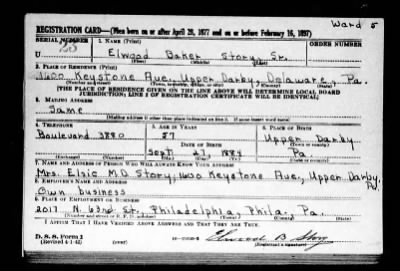 Ward 5
REGISTRATION CARD—(Men born on or after April 28, 1877 and on or before February 16, 1897)
SERIAL NUMBER 1. NAME (Print) ORDER NUMBER
U 23 Elwood Baker Story Sr.
2. PLACE OF RESIDENCE (Print)
1600 Keystone Ave., Upper Darby, Delaware, Pa.
[THE PLACE OF RESIDENCE GIVEN ON THE LINE ABOVE WILL DETERMINE LOCAL BOARD
JURISDICTION; LINE 2 OF REGISTRATION CERTIFICATE WILL BE IDENTICAL]
3. MAILING ADDRESS
Same
[Mailing address if other than place indicated on line 2. If same insert word same]
4. TELEPHONE 5. AGE IN YEARS 6. PLACE OF BIRTH
Boulevard 3880 57 Upper Darby
DATE OF BIRTH
Sept. 27, 1884 Pa.
(Exchange) (Number) (Mo.) (Day) (Yr.) (State or country)
7. NAME AND ADDRESS OF PERSON WHO WILL ALWAYS KNOW YOUR ADDRESS
Mrs. Elsie M.D. Story, 1600 Keystone Ave., Upper Darby, Pa.
8. EMPLOYER'S NAME AND ADDRESS
Own business
9. PLACE OF EMPLOYMENT OR BUSINESS
2017 N. 63rd St., Philadelphia, Phila., Pa.
(Number and street or R. F. D. number) (Town) (County) (State)
I AFFIRM THAT I HAVE VERIFIED ABOVE ANSWERS AND THAT THEY ARE TRUE.
D. S. S. Form 1
(Revised 4-1-42) (over) Elwood B Story
(Registrant's signature)